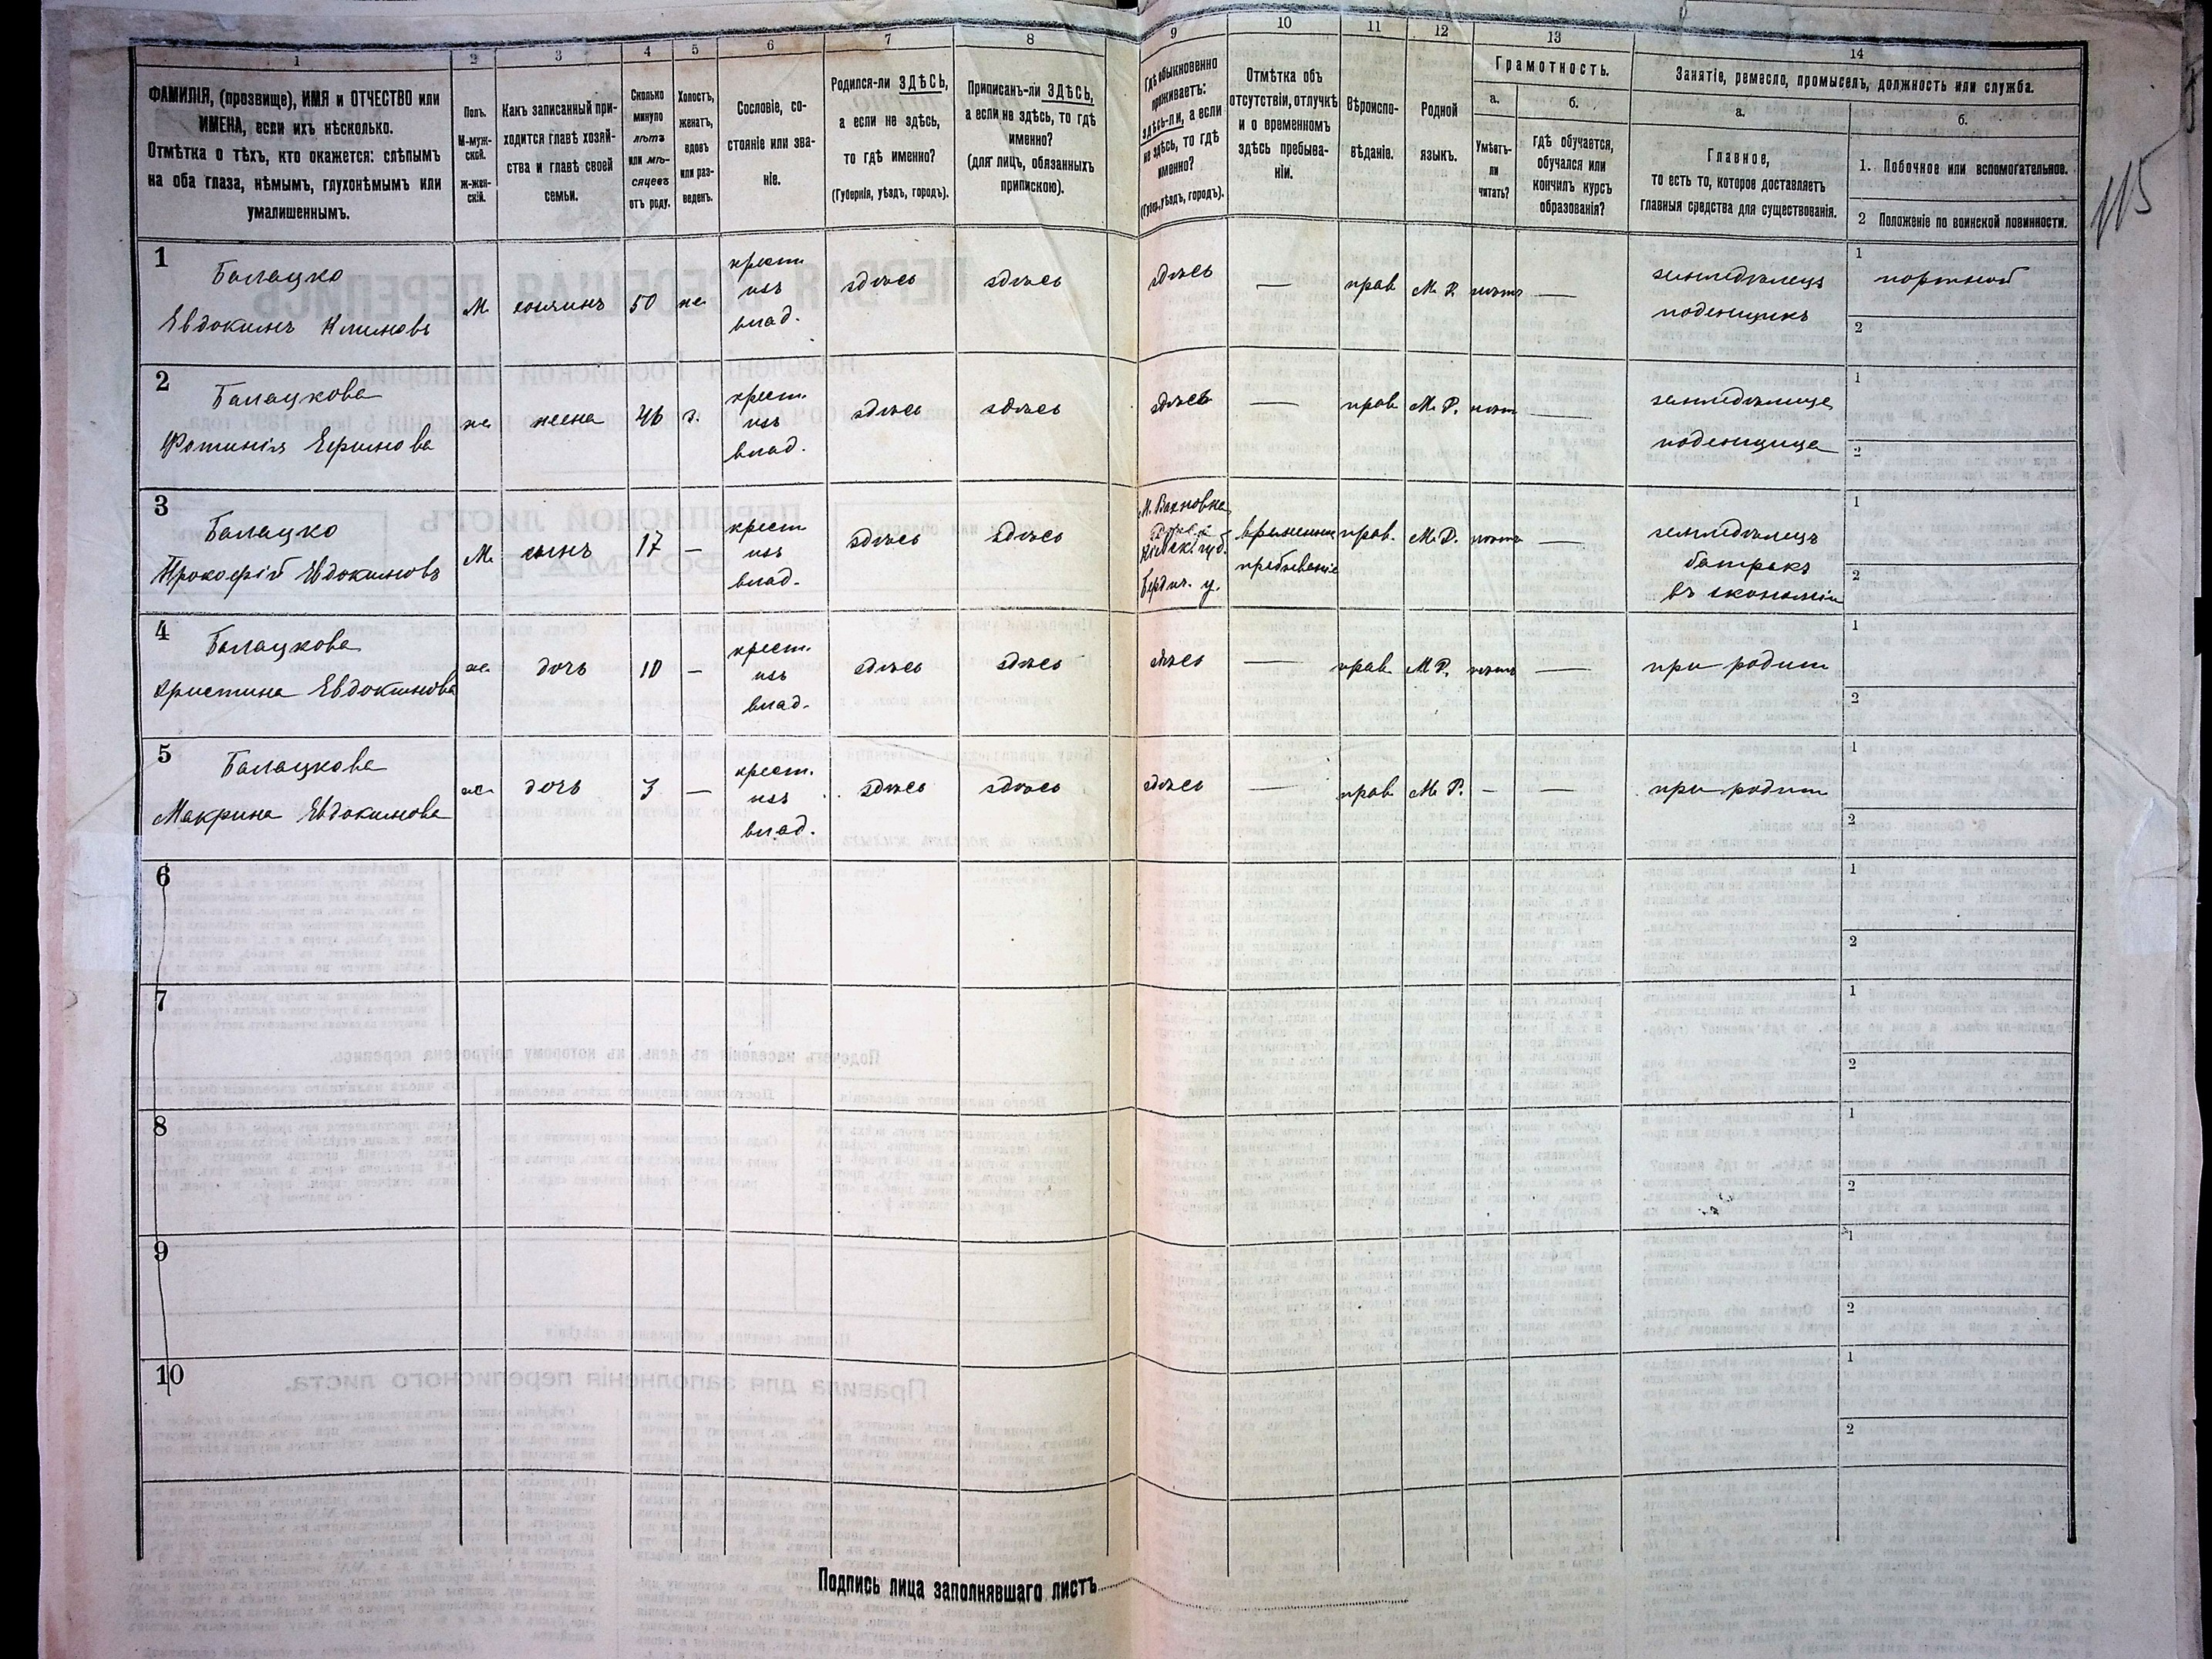 1
2
3
4
5
6
7
8
9
10
11
12
13
14
ФАМИЛІЯ, (прозвище), ИМЯ и ОТЧЕСТВО или
ИМЕНА, если ихъ нѣсколько.
Отмѣтка о тѣхъ, кто окажется: слѣпымъ
на оба глаза, нѣмымъ, глухонѣмымъ или
умалишеннымъ.
Полъ.
М-муж-
ской.
Ж-жен-
скій.
Какъ записанный при-
ходится главѣ хозяй-
ства и главѣ своей
семьи.
Сколько
минуло
лѣтъ
или мѣ-
сяцевъ
отъ роду.
Холостъ,
женатъ,
вдовъ
или раз-
веденъ.
Сословіе, со-
стояніе или зва-
ніе.
Родился-ли ЗДѢСЬ,
а если не здѣсь,
то гдѣ именно?
(Губернія, уѣздъ, городъ).
Приписанъ-ли ЗДѢСЬ,
а если не здѣсь, то гдѣ
именно?
(для лицъ, обязанныхъ
припискою).
Гдѣ обыкновенно
проживаетъ:
здѣсь-ли, а если
не здѣсь, то гдѣ
именно?
(Губер., уѣздъ, городъ).
Отмѣтка объ
отсутствіи, отлучкѣ
и о временномъ
здѣсь пребыва-
ніи.
Вѣроиспо-
вѣданіе.
Родной
языкъ.
Грамотность.
а.
Умѣетъ-
ли
читать?
б.
гдѣ обучается,
обучался или
кончилъ курсъ
образованія?
Занятіе, ремесло, промыселъ, должность или служба.
а.
Главное,
то есть то, которое доставляетъ
главныя средства для существованія.
б.
1. Побочное или вспомогательное.
2 Положеніе по воинской повинности.
115
1
Балацко
Евдокимъ Климовъ
М
хозяинъ
50
же
крест
изъ
влад.
здѣсь
здѣсь
здѣсь
—
прав
М Р
нѣтъ
—
земледѣлецъ
поденщикъ
1
портной
2
2
Балацкова
Фотинія Ефимова
же
жена
46
з.
крест.
изъ
влад.
здѣсь
здѣсь
здѣсь
—
прав
М. Р.
нѣт
—
земледѣлица
поденщица
1
2
3
Балацко
Прокофій Евдокимовъ
М
сынъ
17
—
крест
изъ
влад.
здѣсь
здѣсь
М. Вахновка
Кіевск. губ.
Бердич. у.
временно
пребываніе
прав.
М. Р.
нѣтъ
—
земледѣлецъ
батракъ
въ економіи
1
2
4
Балацкова
Христина Евдокимова
же
дочь
10
—
крест.
изъ
влад.
здѣсь
здѣсь
здѣсь
—
прав
М Р.
нѣтъ
—
при родит
1
2
5
Балацкова
Макрина Евдокимова
же
дочь
3
—
крест.
изъ
влад.
здѣсь
здѣсь
здѣсь
—
прав
М Р.
—
—
при родит
1
2
6
1
2
7
1
2
8
1
2
9
1
2
10
1
2
Подпись лица заполнявшаго листъ